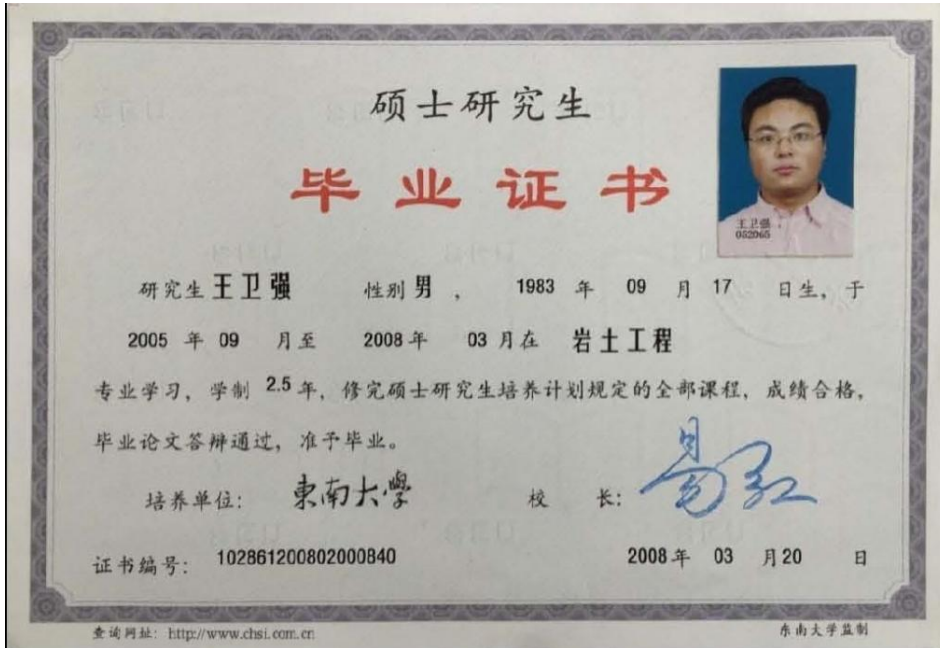 硕士研究生
毕业证书
王卫强
052065
研究生 王卫强 性别 男 ， 1983 年 09 月 17 日生，于
2005 年 09 月至 2008 年 03 月在 岩土工程
专业学习，学制 2.5 年，修完硕士研究生培养计划规定的全部课程，成绩合格，
毕业论文答辩通过，准予毕业。
培养单位： 東南大學 校 长： 易红
证书编号： 102861200802000840 2008 年 03 月 20 日
查询网址：http://www.chsi.com.cn 东南大学监制